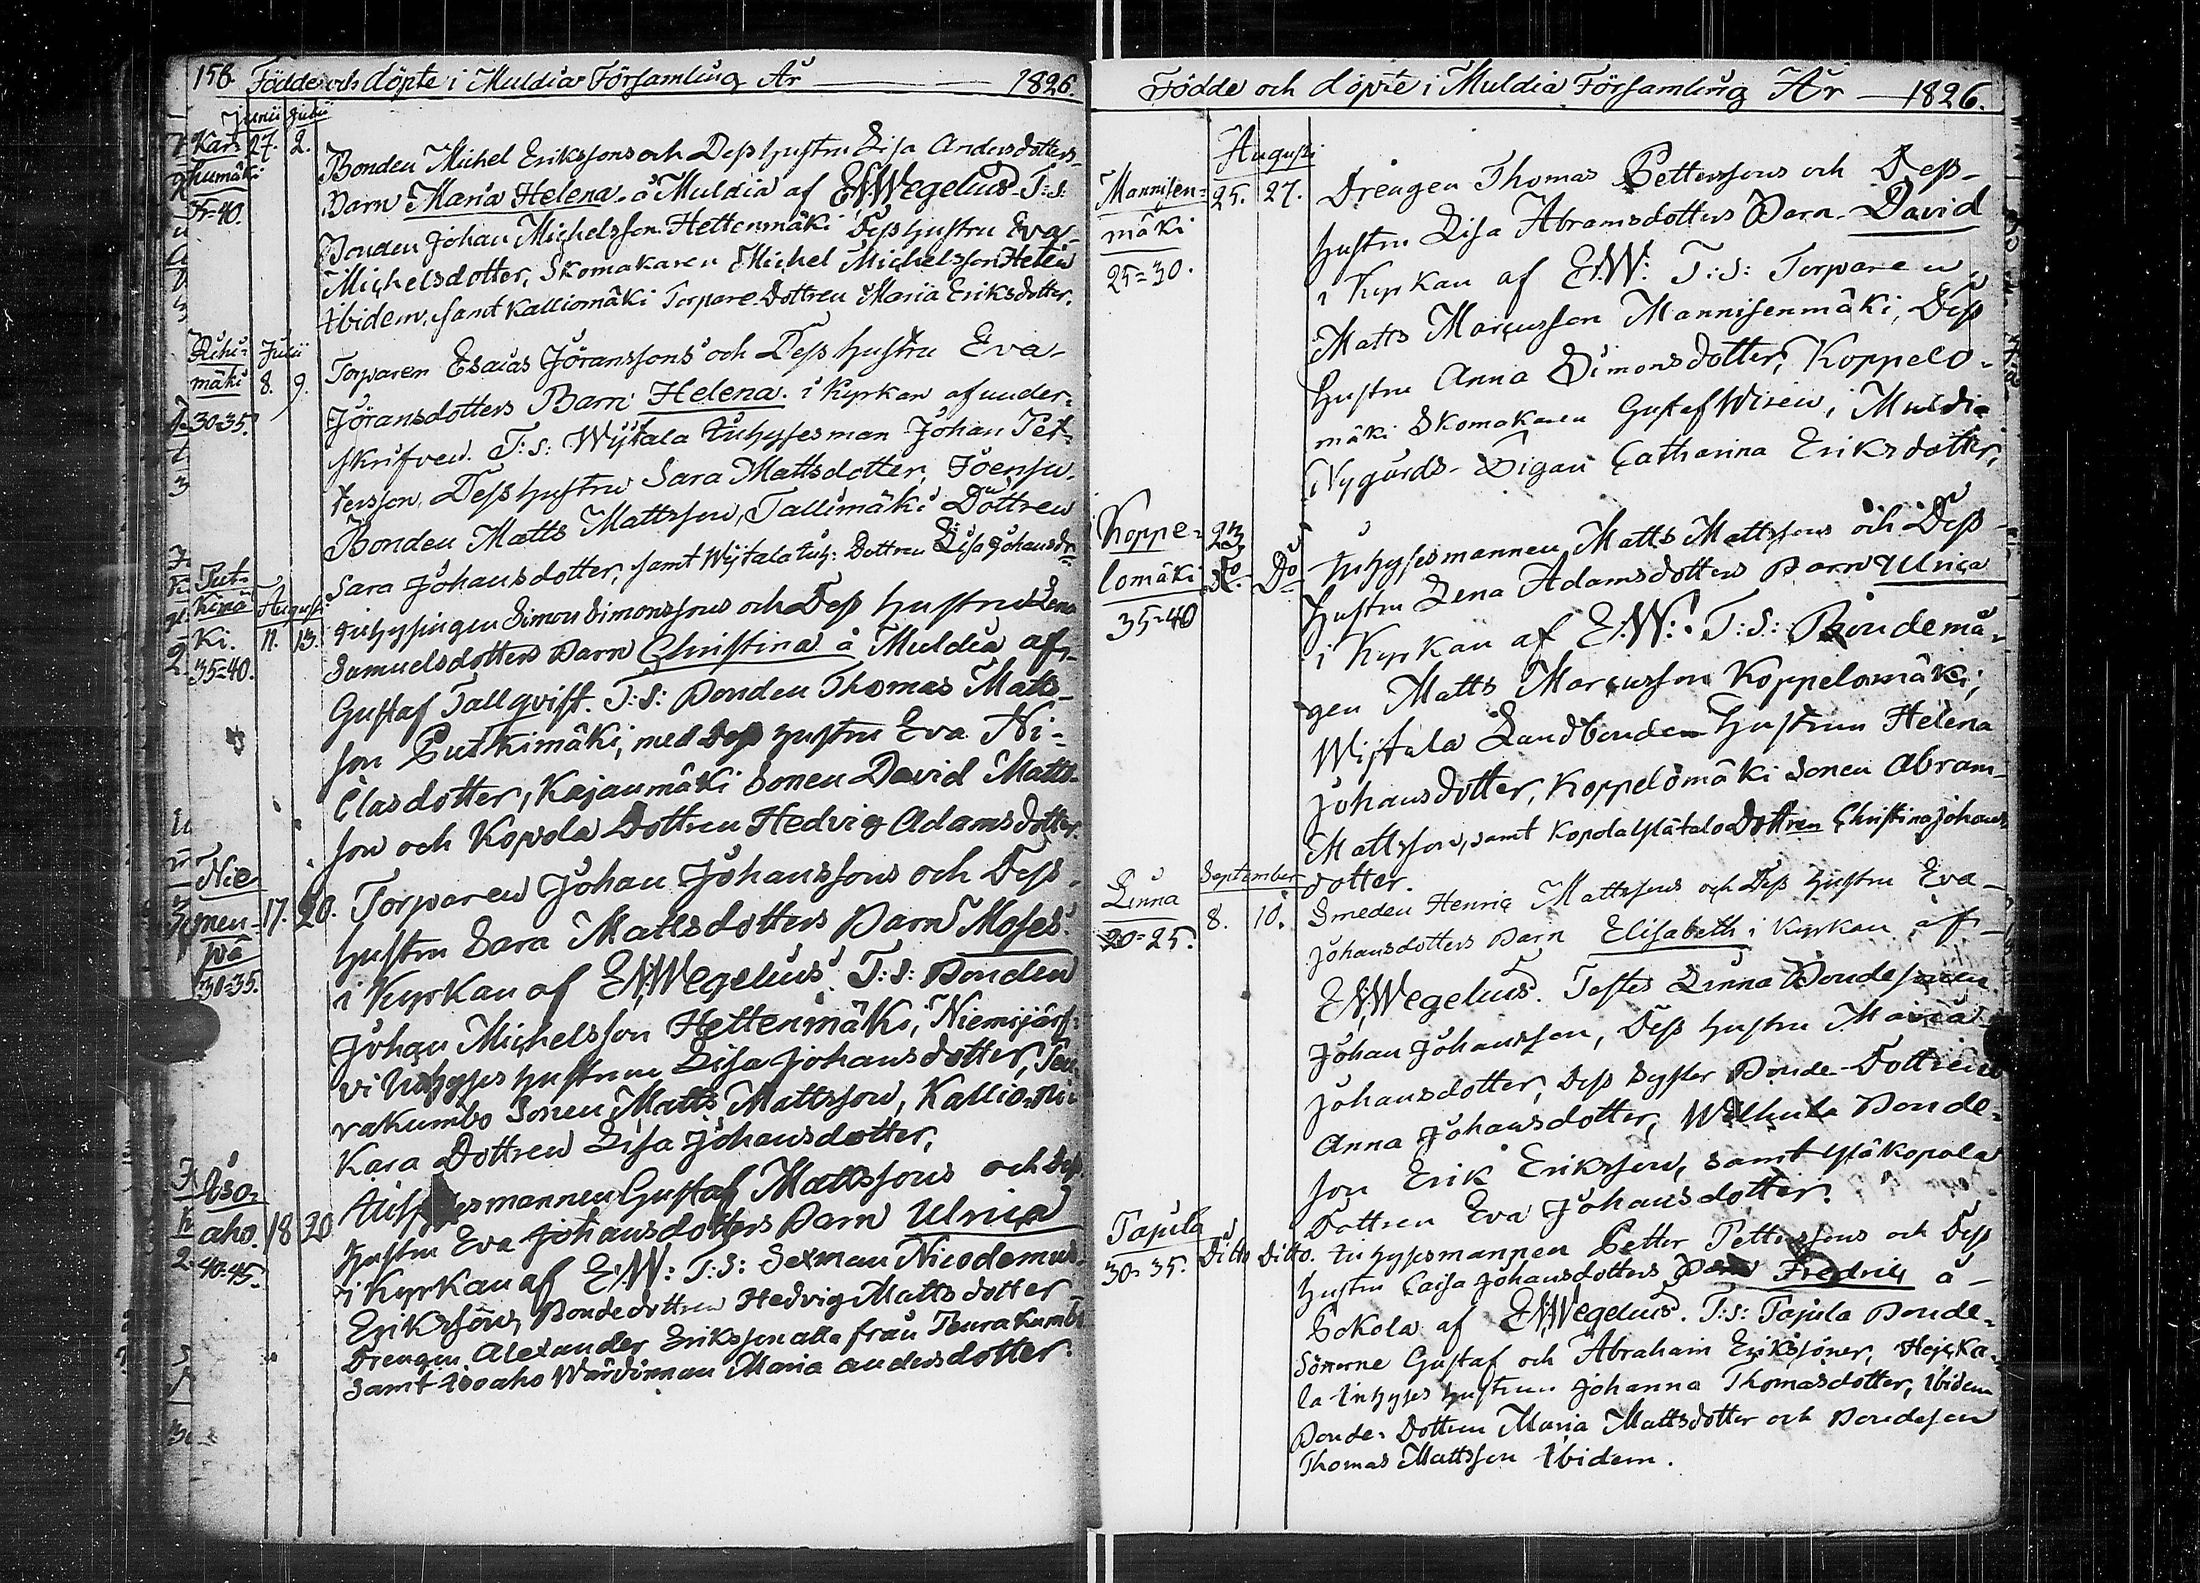 156. Födde och döpte i Muldia Församling År 1826.
Junii Julii
Kar- 27. 2.
humäki
35-40.
Bonden Michel Erikssons och Dess hustru Lisa Andersdotters
Barn Maria Helena å Muldia af EWWegelius. T:s:
Bonden Johan Michelsson Hettenmäki Dess hustru Eva
Michelsdotter, Skomakaren Michel Michelsson
Ibidem, samt Kalliomäki Torpare Dottren Maria Eriksdotter.
Julii
mäki 8. 9.
30-35.
Torparen Esaias Jöranssons och Dess hustru Eva
Jöransdotters Barn Helena i Kyrkan af under-
skrifven. T:s: Wijtala Inhysesman Johan Pet-
tersson, Dess hustru Sara Mattsdotter, Joensu
Bonden Matts Mattsson, Tallimäki Dottren
Sara Johansdotter, samt Wijtala Inh: Dottren Lisa Johansdr
Put-
kimä- Augusti
ki. 11. 13.
35-40.
Inhysingen Simon Simonssons och Dess hustru Lena
Samuelsdotters Barn Christina å Muldia af
Gustaf Tallqvist. T:s: Bonden Thomas Matts-
son Putkimäki, med Dess hustru Eva Ni-
clasdotter, Kajanmäki Sonen David Matts-
son och Kopola Dottren Hedvig Adamsdotter.
Nie-
men- 17. 20.
pä
30-35.
Torparen Johan Johanssons och Dess
hustru Sara Mattsdotters Barn Moses
i Kyrkan af EWWegelius. T:s: Bonden
Johan Michelsson Hettenmäki, Niemijärf-
vi Inhyses hustrun Lisa Johansdotter, Ten-
rakumbo Sonen Matts Mattsson, Kallio
Kara Dottren Lisa Johansdotter,
Iso-
aho. 18 20
40-45.
Inhysesmannen Gustaf Mattssons och Dess
hustru Eva Johansdotters Barn Ulrica
i Kyrkan af E.W: T:s: Sexman Nicodemus
Eriksson, Bondedottren Hedvig Mattsdotter
Drengen Alexander Eriksson alla från Teurakumbo
samt Isoaho Wärdinnan Maria Andersdotter.
Födde och döpte i Muldia Församling År 1826.
Augusti
Mannisen- 25. 27.
mäki
25-30.
Drengen Thomas Petterssons och Dess
hustru Lisa Abramsdotters Barn David
i Kyrkan af E.W: T:s: Torparen
Matts Marcusson Mannisenmäki, Dess
hustru Anna Simonsdotter, Koppelo-
mäki Skomakaren Gustaf Wiren, Muldia
Nygårds Pigan Catharina Eriksdotter,
Koppe- 23
lomäki Do
35-40
Inhysesmannen Matts Mattssons och Dess
hustru Lena Adamsdotters Barn Ulrica
i Kyrkan af E:W: T:s: Bondemå-
gen Matts Marcusson Koppelomäki,
Wijtala Landbonden hustrun Helena
Johansdotter, Koppelomäki Sonen Abram
Mattsson, samt Kopola Ylätalo Dottren Christina Johans
dotter.
September
Linna 8. 10.
20-25.
Smeden Henric Mattssons och Dess hustru Eva
Johansdotters Barn Elisabeth i Kyrkan af
EWWegelius. Testes Linna Bondesonen
Johan Johansson, Dess hustru Maria
Johansdotter, Dess Syster Bonde-Dottren
Anna Johansdotter, Bonde-
son Erik Eriksson, samt Yläkopola
Dottren Eva Johansdotter.
Tapula Ditto Ditto.
30-35.
Inhysesmannen Petter Petterssons och Dess
hustru Caisa Johansdotters Barn Fredric å
Sokola af EWWegelius. T:s: Tapula Bonde-
Sönerne Gustaf och Abraham Erikssöner,
la Inhyses hustrun Johanna Thomasdotter, Ibidem
Bonde-Dottren Maria Mattsdotter och Bondeson
Thomas Mattsson Ibidem.